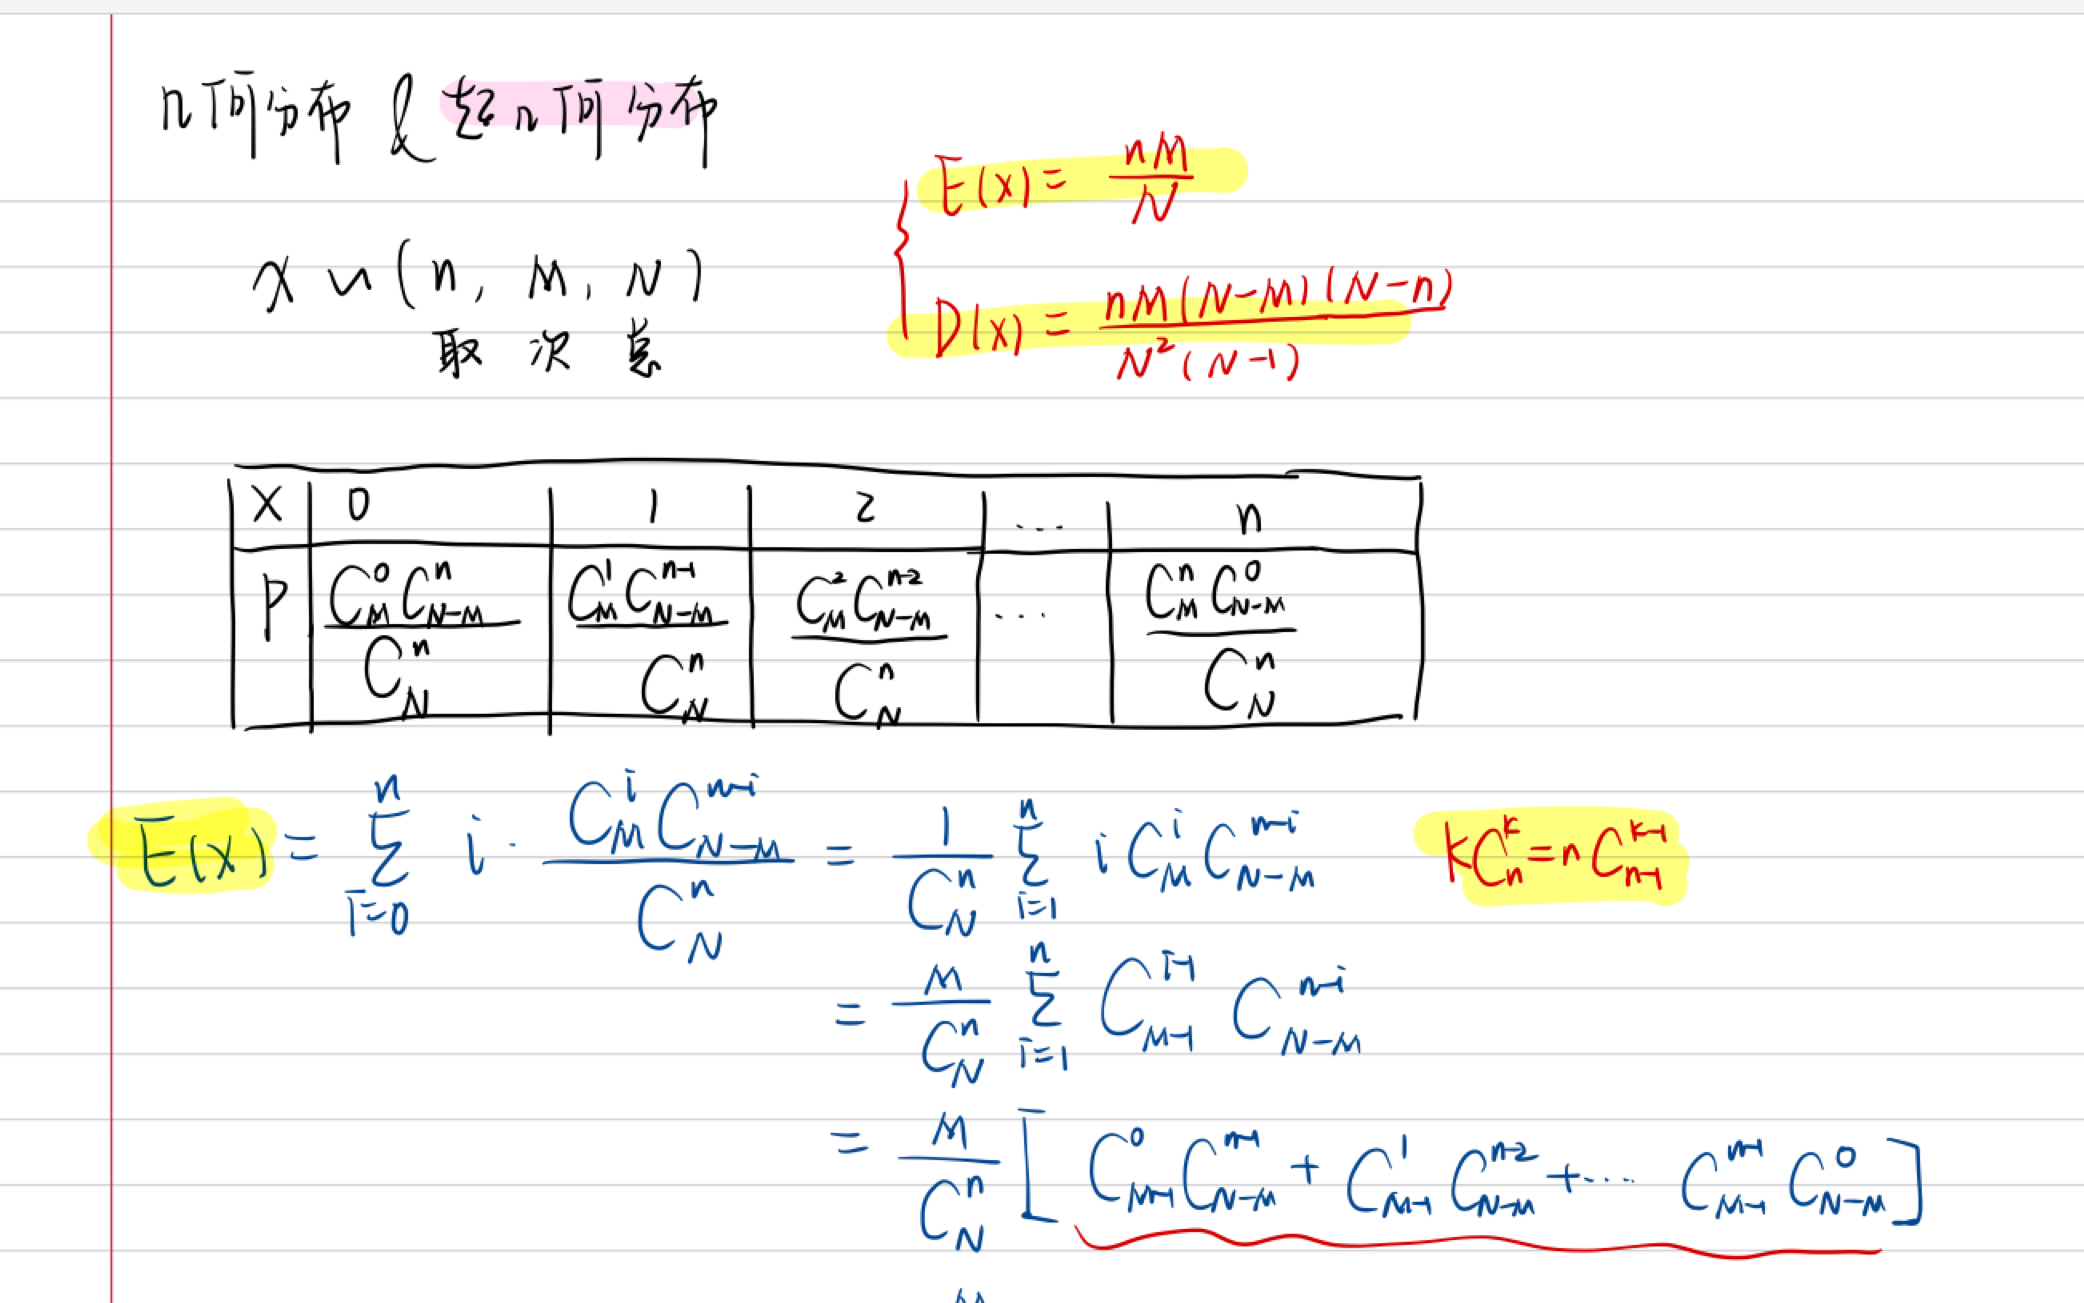 几何分布 & 超几何分布
E(X) = nM/N
X ~ (n, M, N)
取 次 总
D(X) = nM(N-M)(N-n) / N²(N-1)
X 0 1 2 ... n
P C_M^0 C_{N-M}^n / C_N^n C_M^1 C_{N-M}^{n-1} / C_N^n C_M^2 C_{N-M}^{n-2} / C_N^n ... C_M^n C_{N-M}^0 / C_N^n
E(X) = Σ_{i=0}^n i · C_M^i C_{N-M}^{n-i} / C_N^n = 1/C_N^n Σ_{i=1}^n i C_M^i C_{N-M}^{n-i} kC_n^k = nC_{n-1}^{k-1}
= M/C_N^n Σ_{i=1}^n C_{M-1}^{i-1} C_{N-M}^{n-i}
= M/C_N^n [ C_{M-1}^0 C_{N-M}^{n-1} + C_{M-1}^1 C_{N-M}^{n-2} + ... C_{M-1}^{n-1} C_{N-M}^0 ]